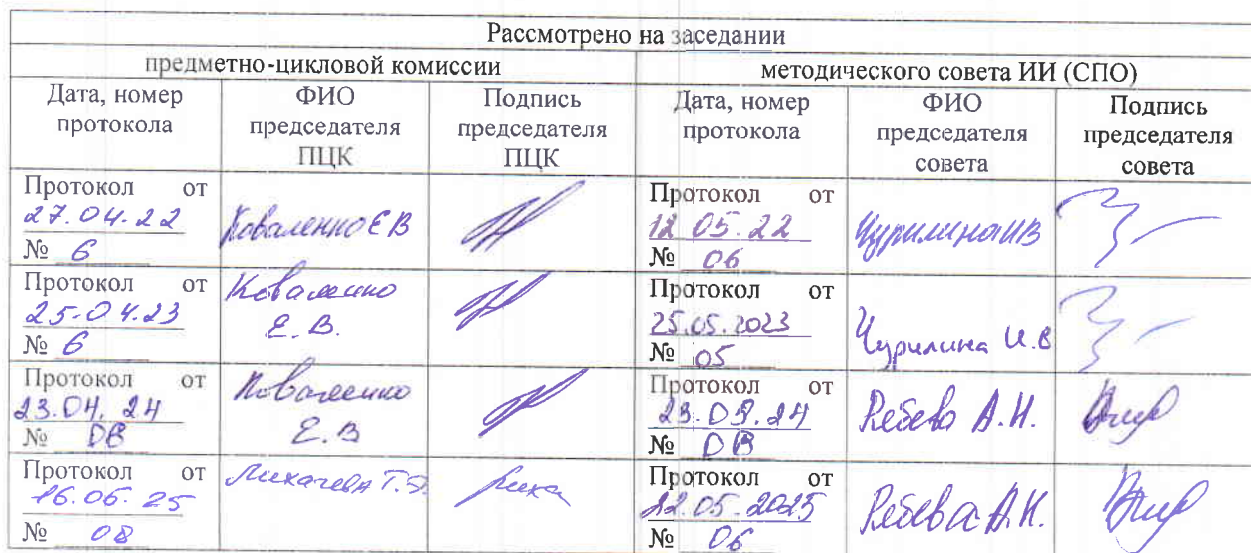 Рассмотрено на заседании
предметно-цикловой комиссии
методического совета ИИ (СПО)
Дата, номер
протокола
ФИО
председателя
ПЦК
Подпись
председателя
ПЦК
Дата, номер
протокола
ФИО
председателя
совета
Подпись
председателя
совета
Протокол от
27.04.22
№ 6
Коваленко Е В
Протокол от
12 05.22
№ 06
Чурилина ИВ
Протокол от
25.04.23
№ 6
Коваленко
Е.В.
Протокол от
25.05.2023
№ 05
Чурилина И.В
Протокол от
23.04.24
№
Коваленко
Е.В
Протокол от
23.05.24
№
А.Н.
Протокол от
25
№ 08
Лихачева Т.
Протокол от
22.05.2025
№ 06
А.Н.